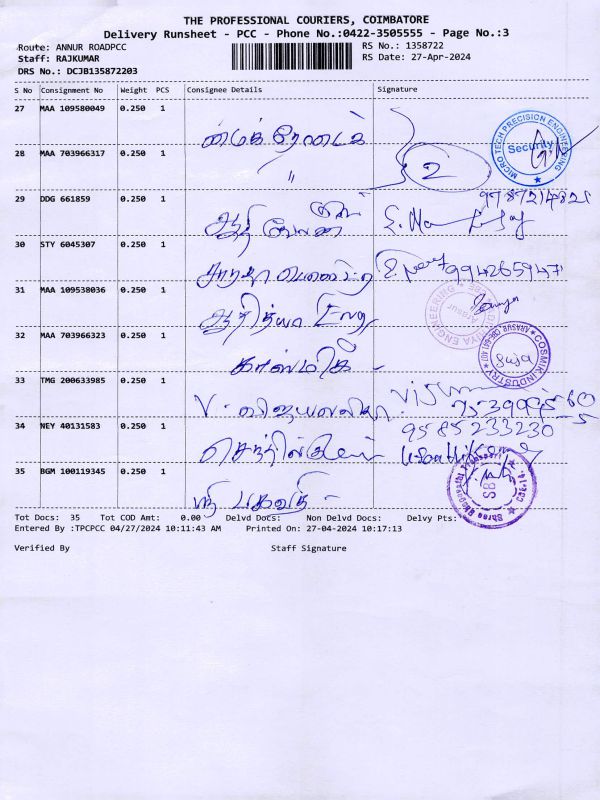 THE PROFESSIONAL COURIERS, COIMBATORE
Delivery Runsheet - PCC - Phone No.:0422-3505555 - Page No.:3
Route: ANNUR ROADPCC
RS No.: 1358722
Staff: RAJKUMAR
RS Date: 27-Apr-2024
DRS No.: DCJB135872203
S No Consignment No Weight PCS Consignee Details Signature
27 MAA 109580049 0.250 1
MICRO TECH PRECISION ENGINEERING
Security
28 MAA 703966317 0.250 1
" 2
29 DDG 661859 0.250 1
9787214821
30 STY 6045307 0.250 1
9942659471
31 MAA 109538036 0.250 1
ஆதித்யா
32 MAA 703966323 0.250 1
காஸ்மிக் -
COSMIK INDUSTRY
ARASUR, CBE-641 407
33 TMG 200633985 0.250 1
V. விஜயலஷ்மி
34 NEY 40131583 0.250 1
9585233230
செந்தில்குமார்
35 BGM 100119345 0.250 1
ஸ்ரீ பகவதி -
SB
Tot Docs: 35 Tot COD Amt: 0.00 Delvd Docs: Non Delvd Docs: Delvy Pts:
Entered By :TPCPCC 04/27/2024 10:11:43 AM Printed On: 27-04-2024 10:17:13
Verified By Staff Signature